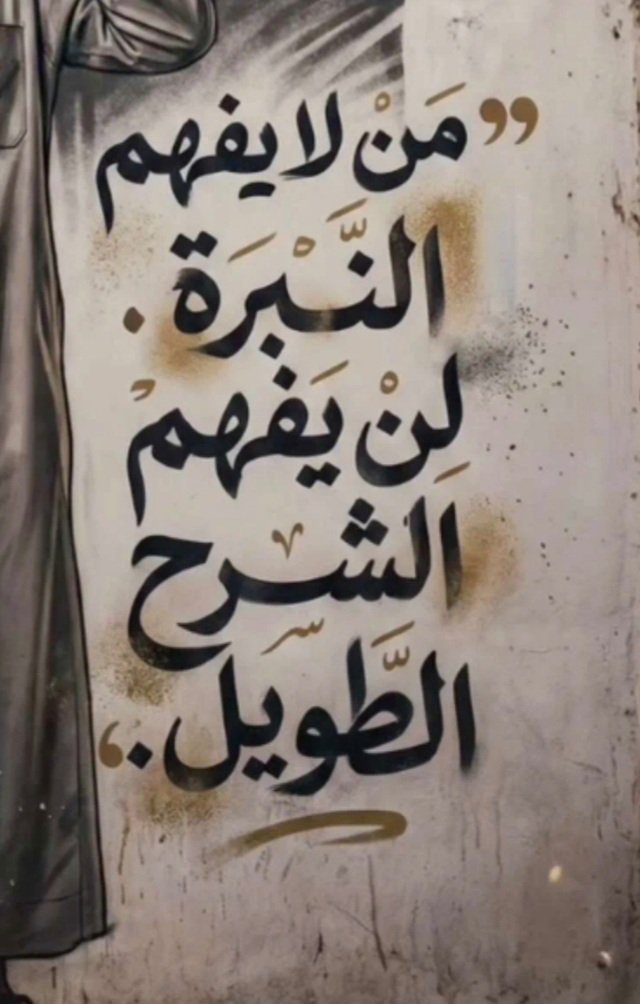 ”مَنْ لا يفهم
النَّبْرَة.
لنْ يَفهمْ
الشرح
الطَّويل.‘